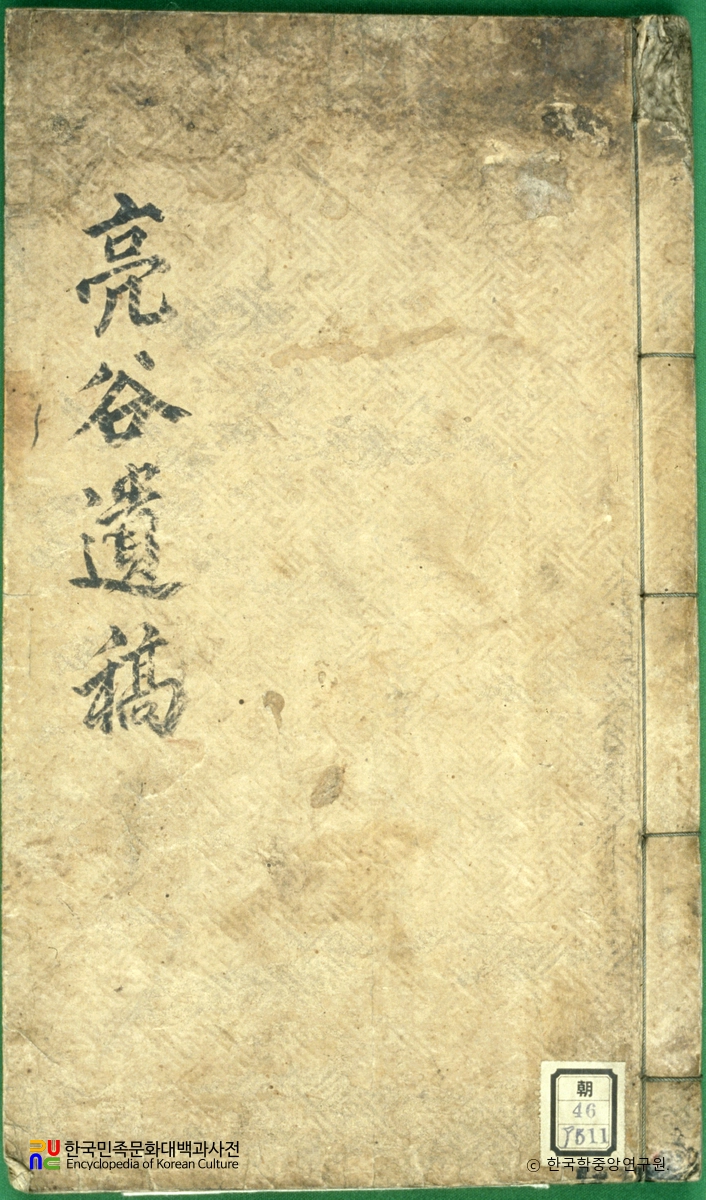 亮谷遺稿
朝
46
한국민족문화대백과사전
Encyclopedia of Korean Culture
© 한국학중앙연구원